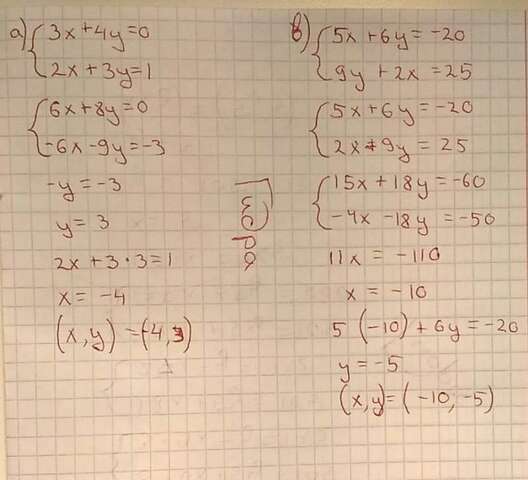 a) 3x+4y=0
2x+3y=1
6x+8y=0
-6x-9y=-3
-y=-3
y=3
2x+3·3=1
x=-4
(x,y)=(-4,3)
в) 5x+6y=-20
9y+2x=25
5x+6y=-20
2x+9y=25
15x+18y=-60
-4x-18y=-50
11x=-110
x=-10
5(-10)+6y=-20
y=-5
(x,y)=(-10,-5)